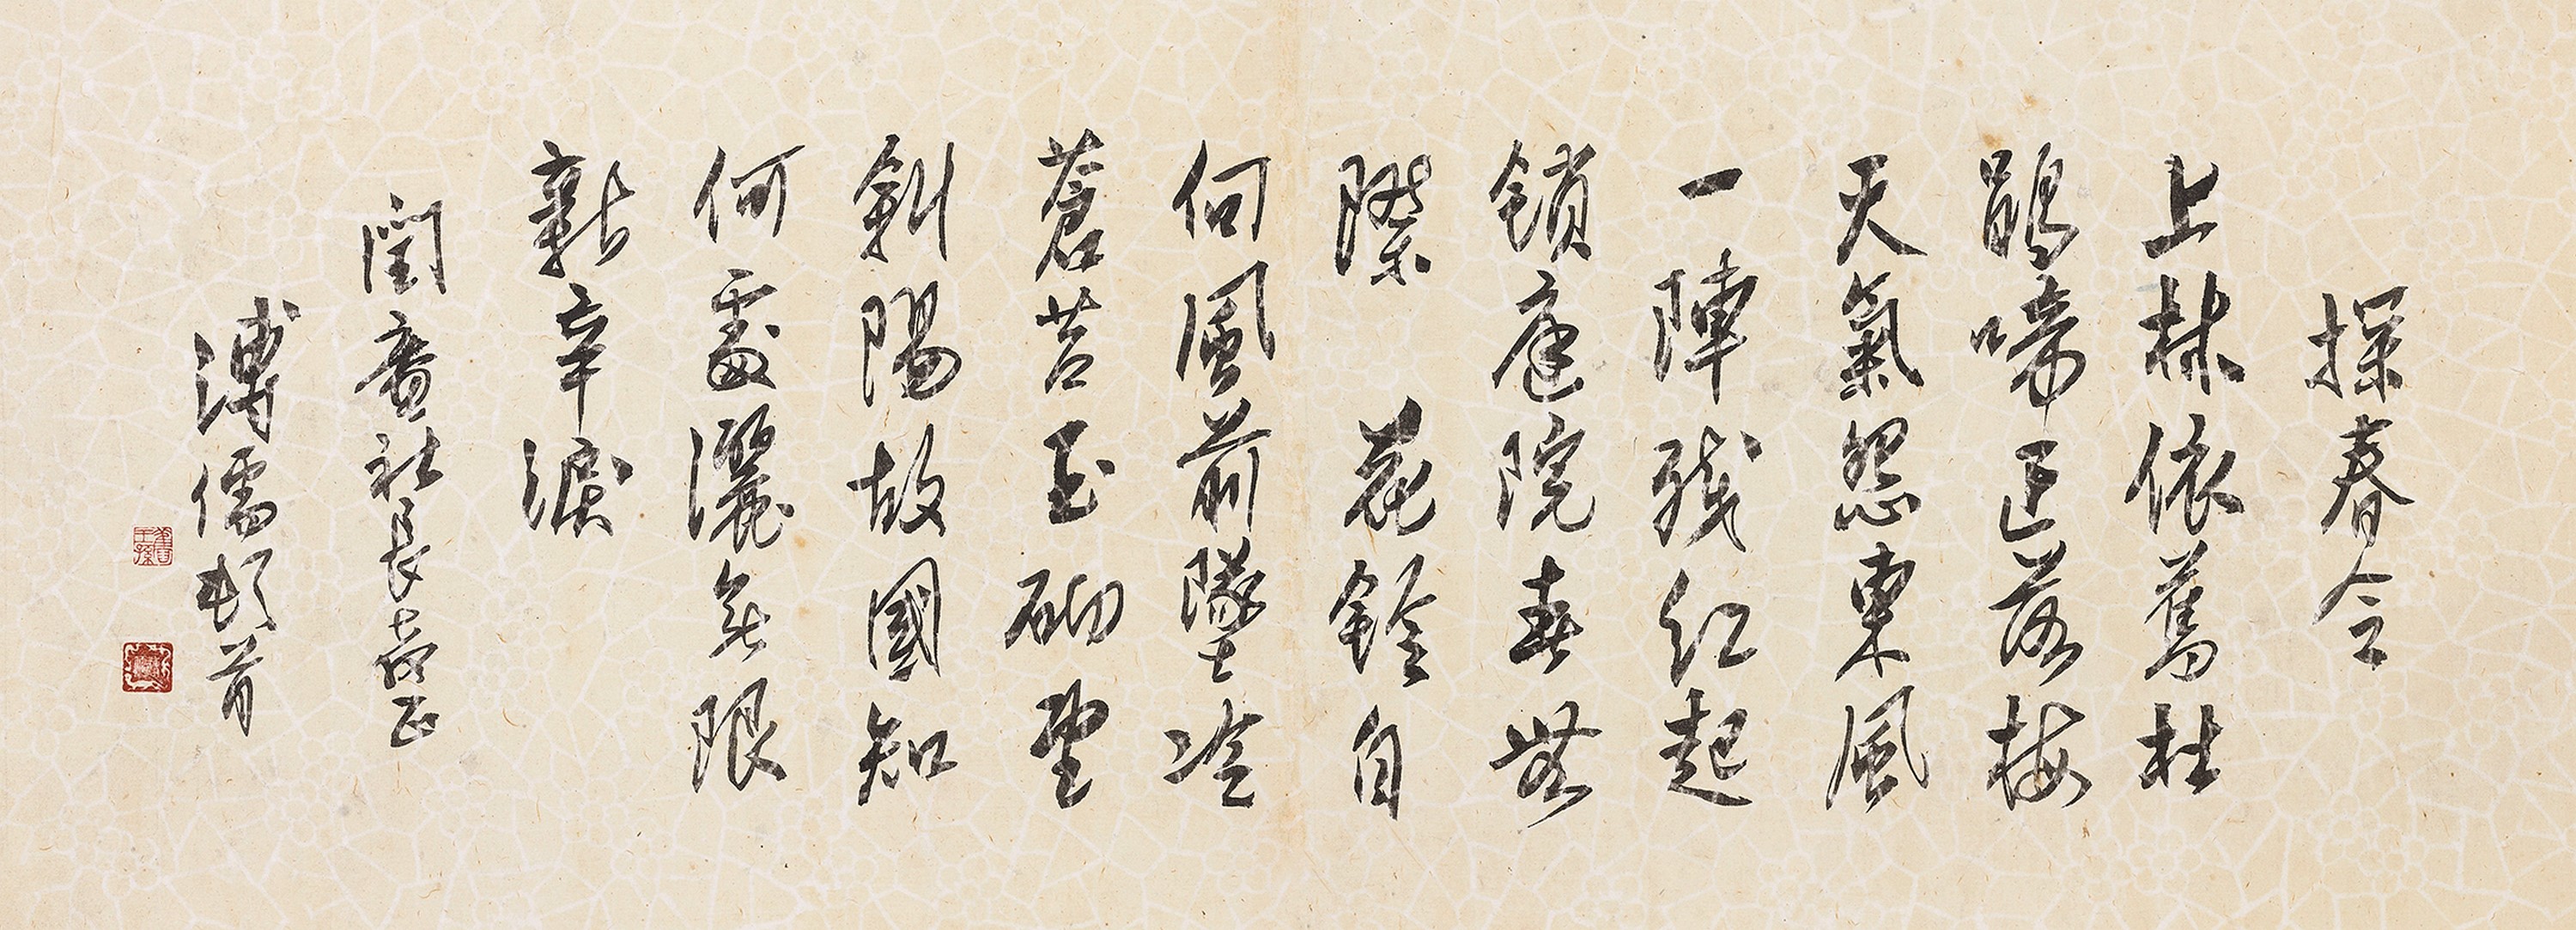 探春令
上林依舊杜
鵑啼正落梅
天氣怨東風
一陣殘紅起
鎖庭院春無
際 花鈴自
向風前墜冷
蒼苔玉砌望
斜陽故國知
何處灑無限
新辛淚
閏盦社長 正
溥儒頓首